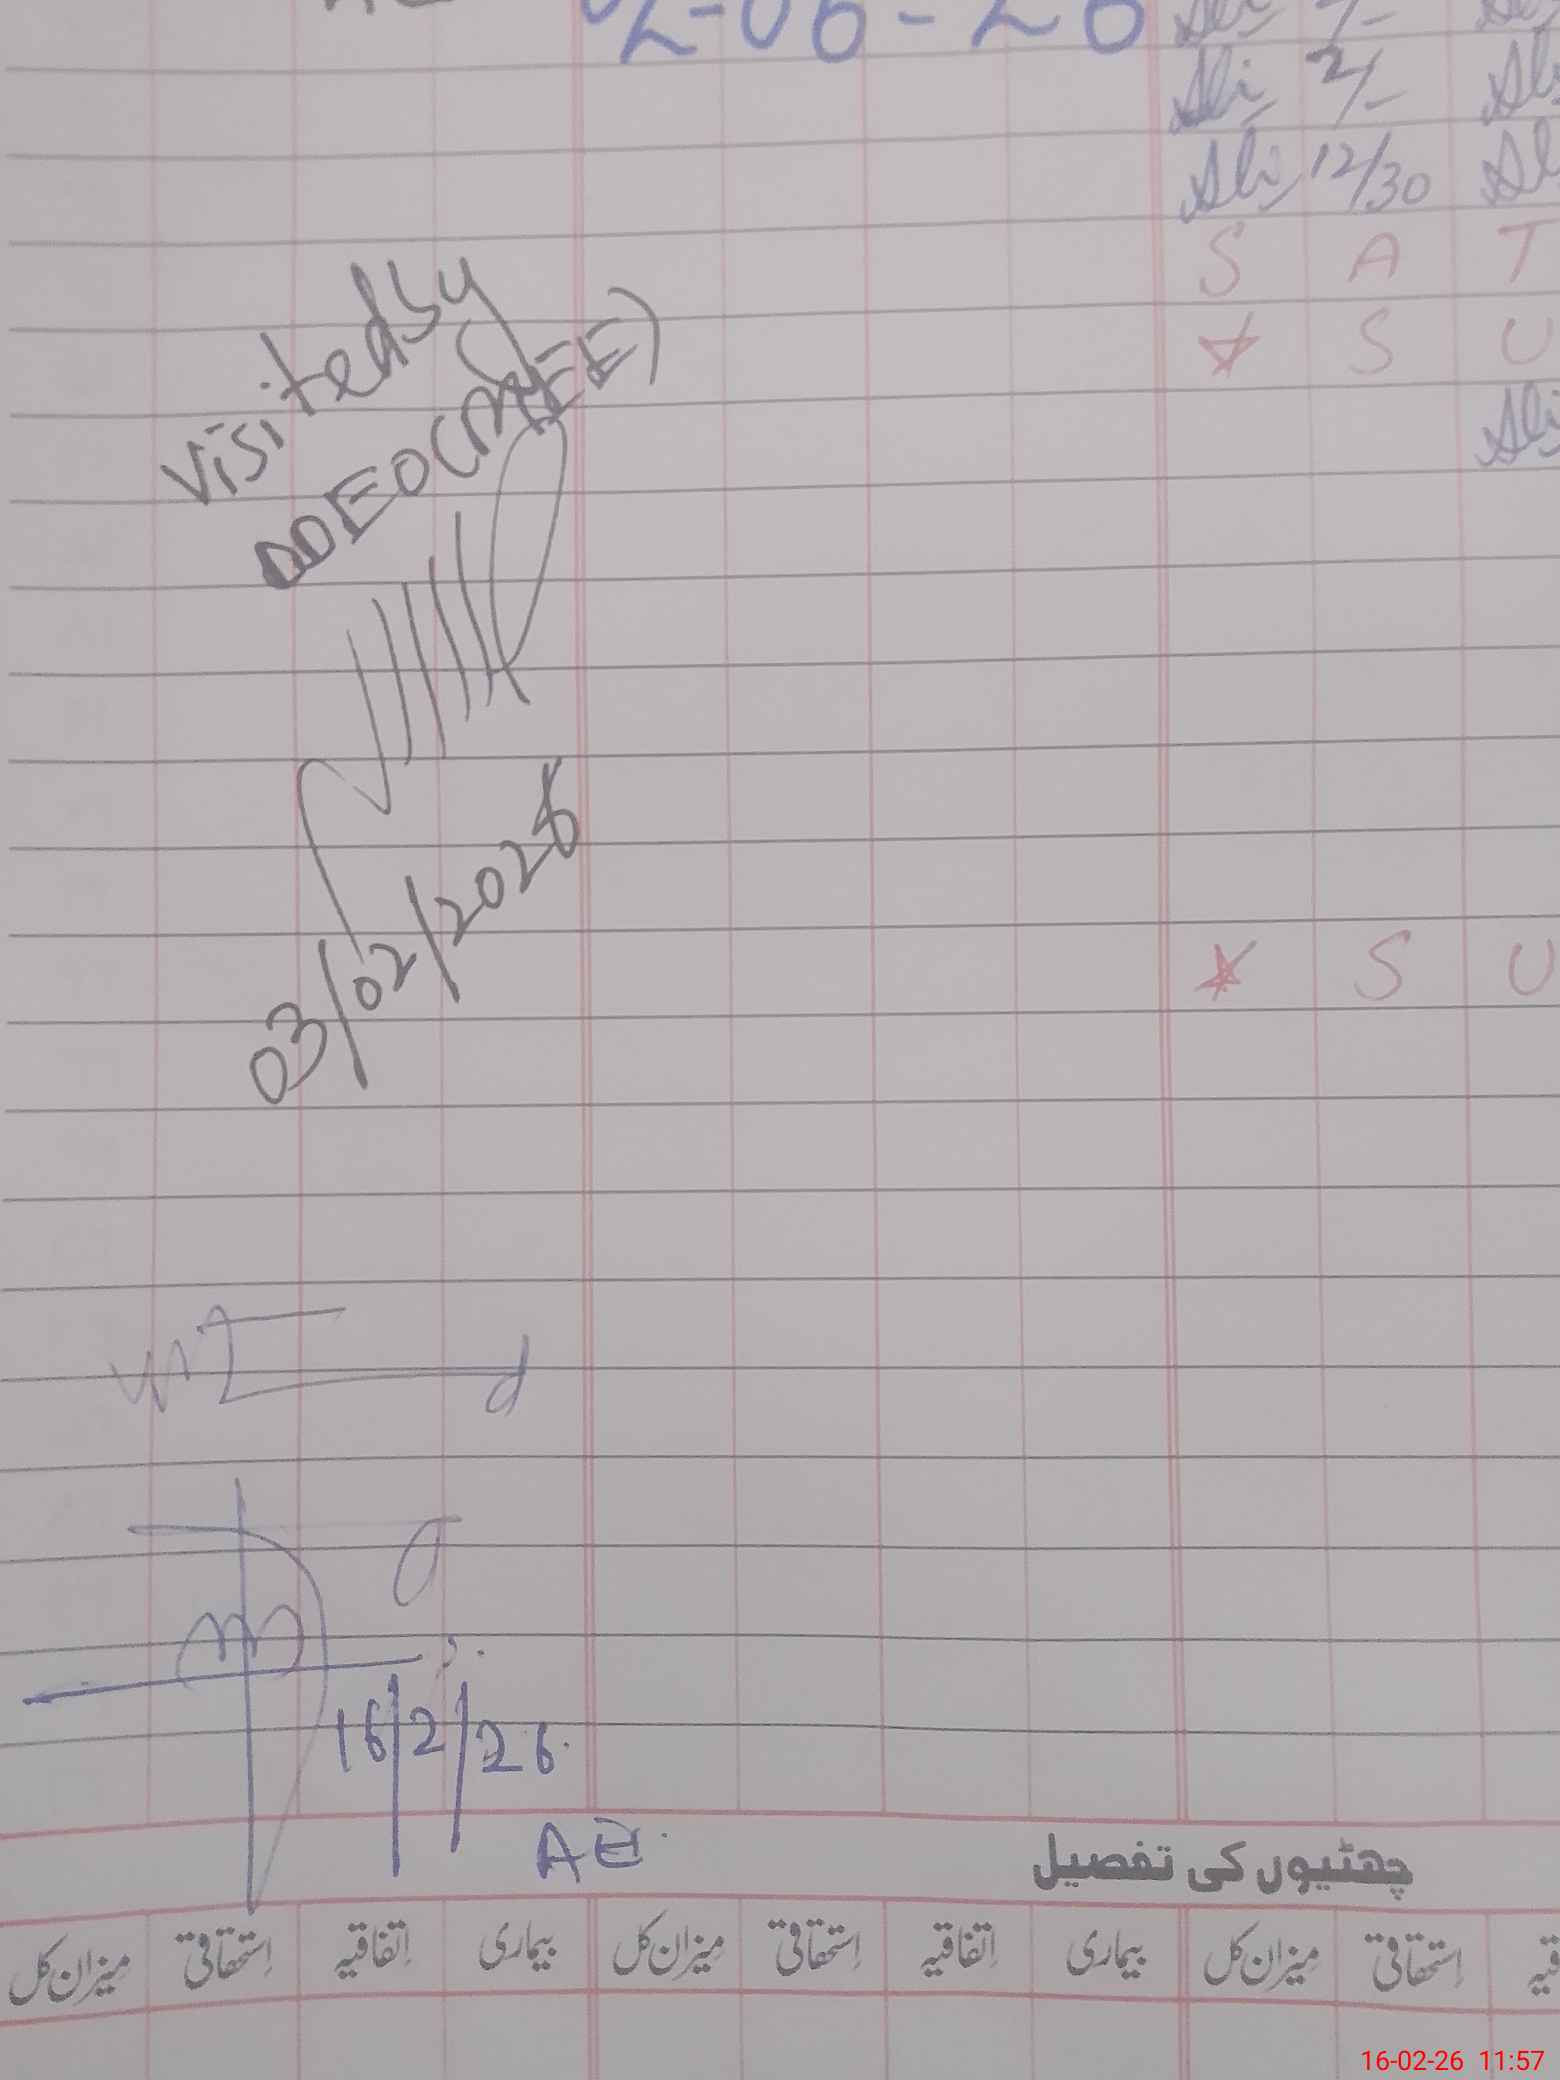 02-06-26
Ali 2/-
Ali 12/30
S A T
* S U
Ali
visited by
DDEO (M-EE)
03/02/2026
* S U
16/2/26.
AEO
چھٹیوں کی تفصیل
بیماری اتفاقیہ استحقاقی میزان کل بیماری اتفاقیہ استحقاقی میزان کل استحقاقی میزان کل
16-02-26 11:57